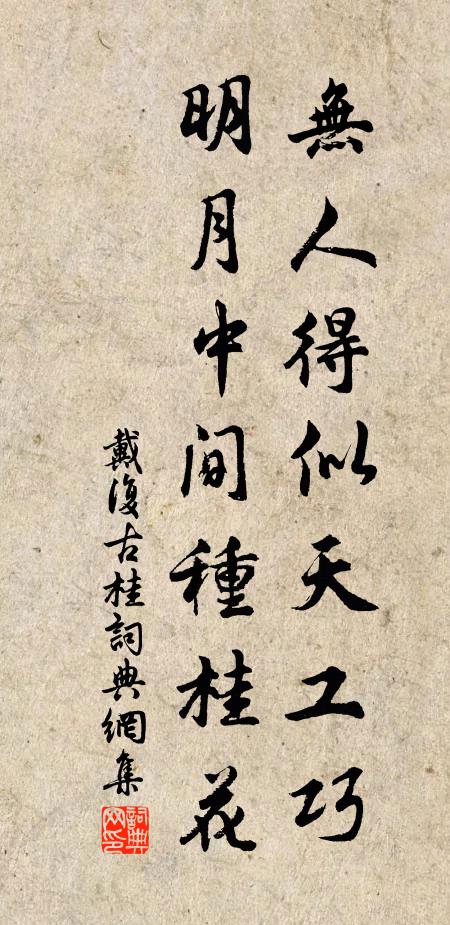 無人得似天工巧
明月中間種桂花
戴復古桂詞典網集
詞典网印